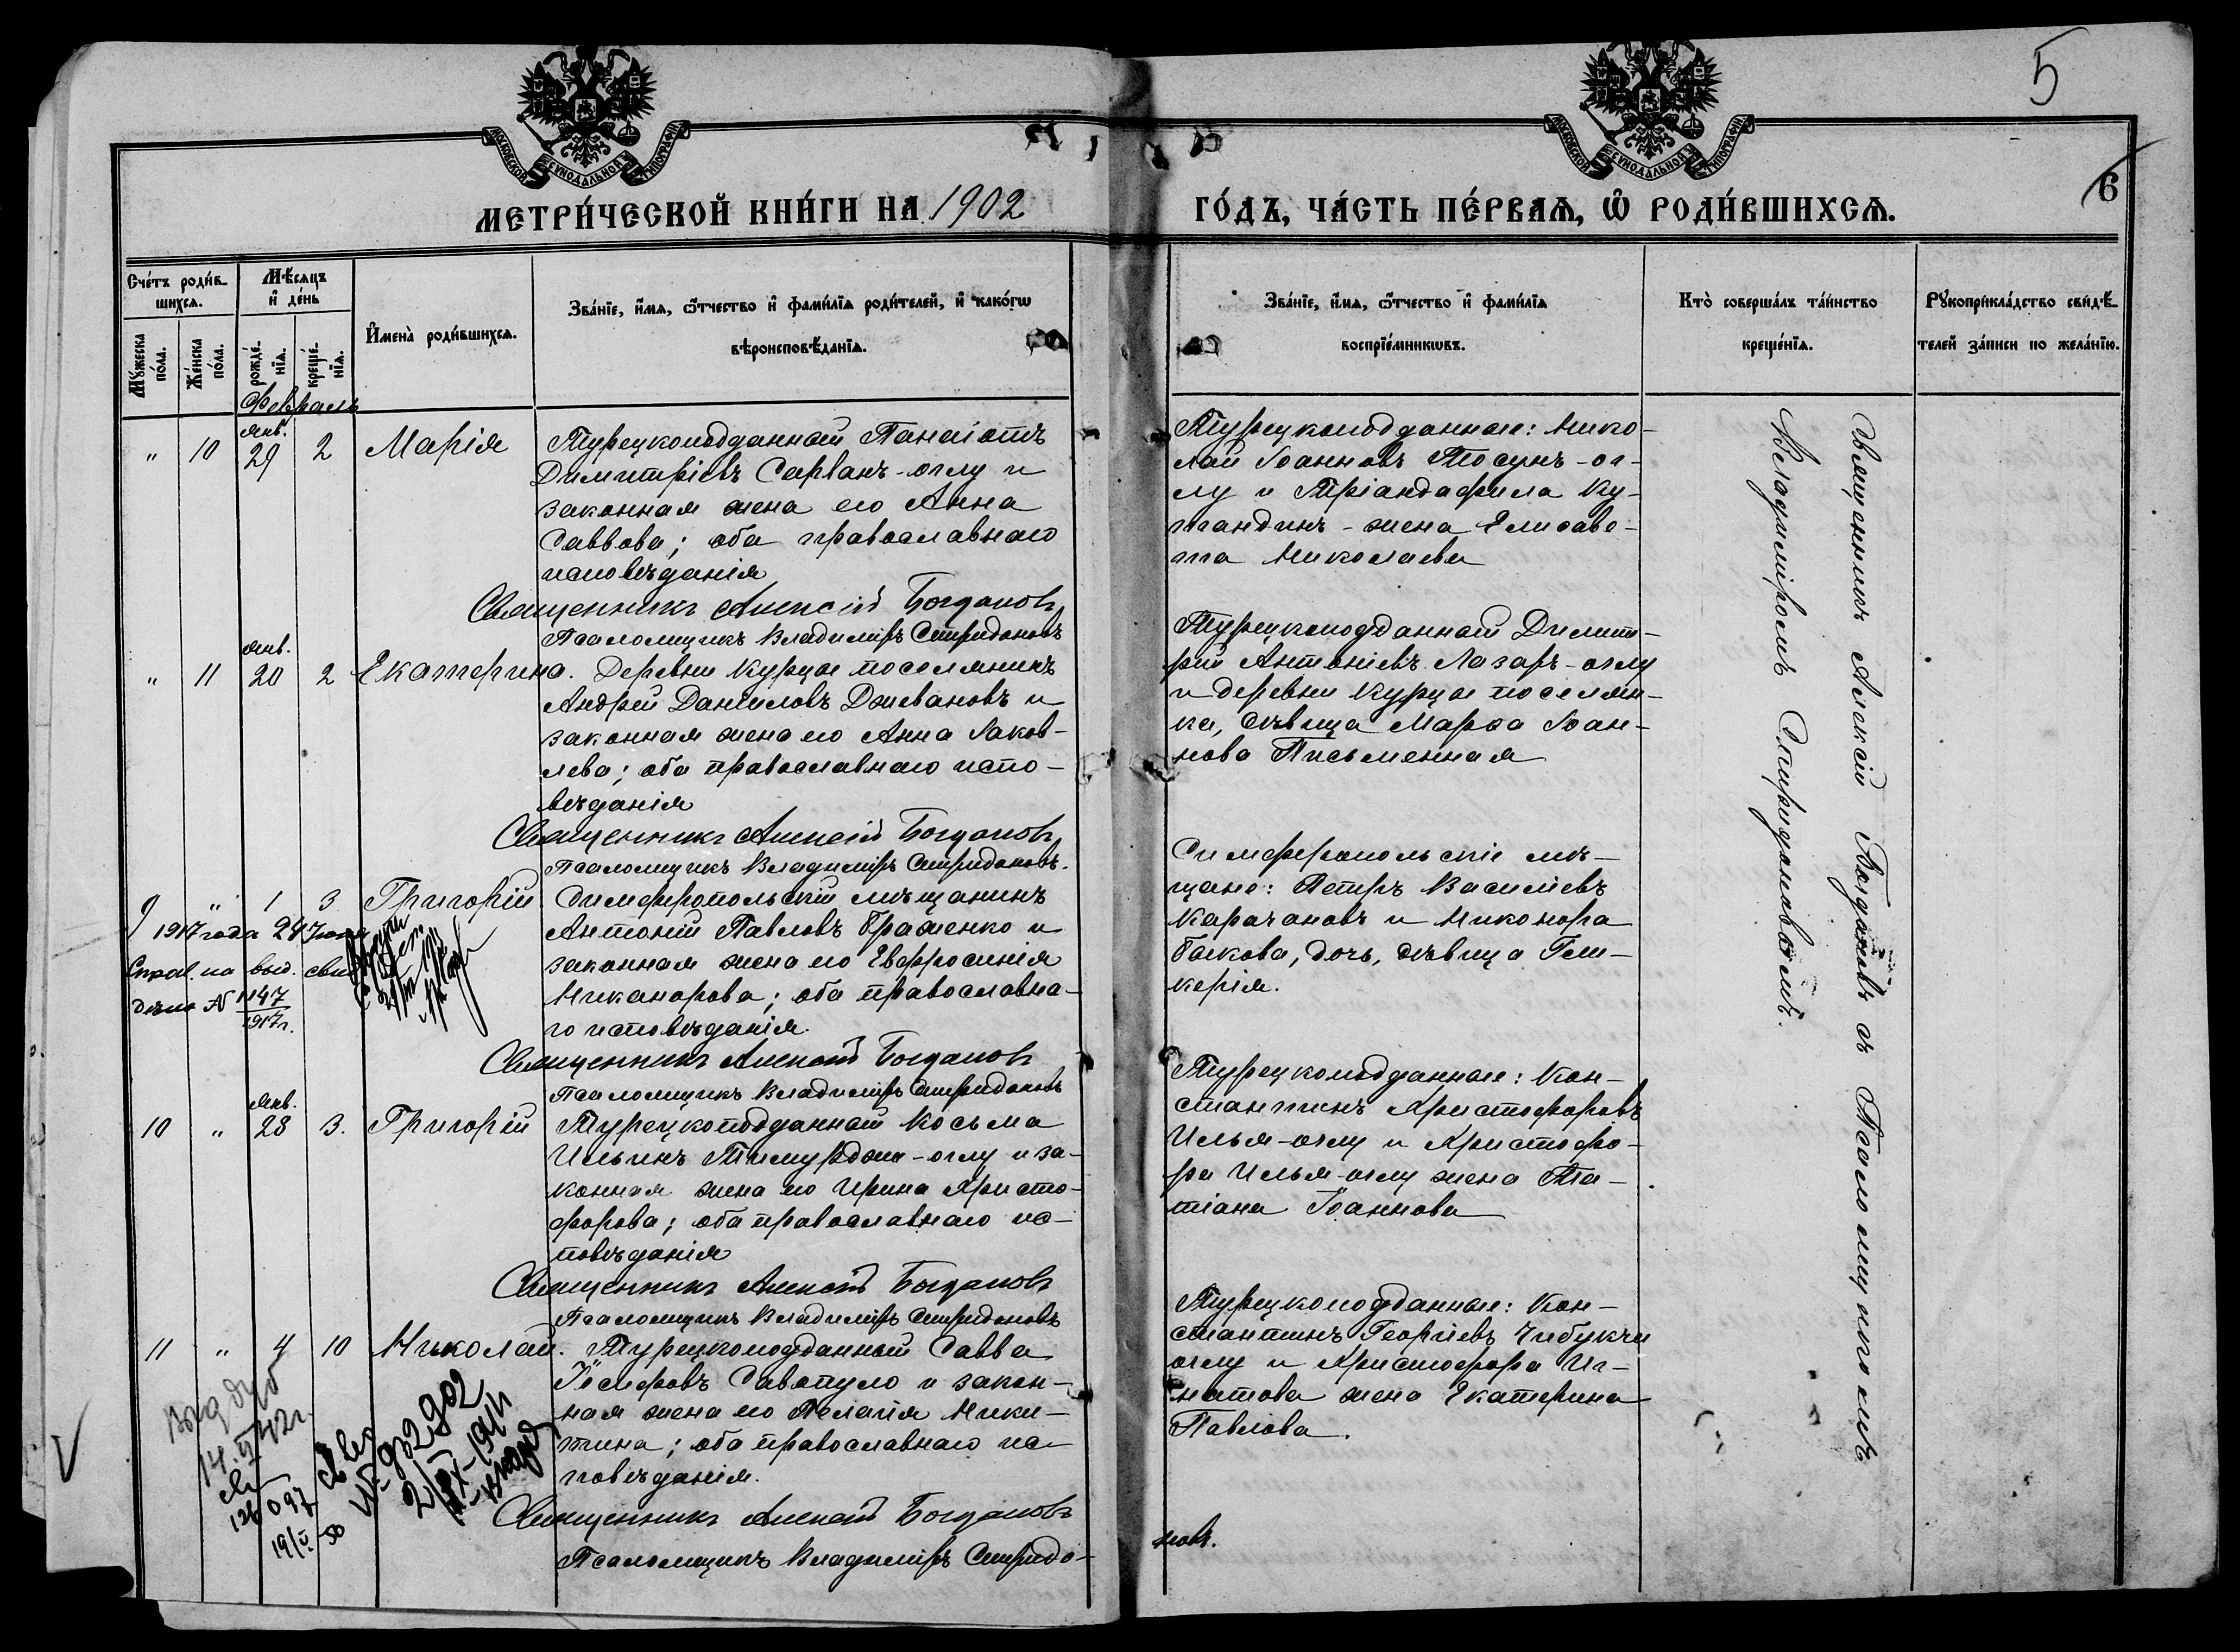 5
6
МОСКОВСКОЙ СУНОДАЛЬНОЙ ТИПОГРАФІИ
МОСКОВСКОЙ СУНОДАЛЬНОЙ ТИПОГРАФІИ
МЕТРИ́ЧЕСКОЙ КНИ́ГИ НА 1902
ГО́ДЪ, ЧА́СТЬ ПЕ́РВАѦ, Ѽ РОДИ́ВШИХСѦ.
Сче́тъ роди́в-
шихсѧ.
Мꙋ́жеска по́ла.
Же́нска по́ла.
Мѣ́сяцъ и҆ де́нь
рожде́-нїѧ.
креще́-нїѧ.
И҆мена̀ роди́вшихсѧ.
Зва́нїе, и҆́мѧ, ѻ҆́тчество и҆ фами́лїѧ роди́телей, и҆ како́гѡ
вѣроисповѣ́данїѧ.
Зва́нїе, и҆́мѧ, ѻ҆́тчество и҆ фами́лїѧ
воспрїе́мникѡвъ.
Кто̀ соверша́лъ та́инство
креще́нїѧ.
Рꙋкоприкла́дство свидѣ́-
телей за́писи по жела́нїю.
Февраль
Янв.
„ 10 29 2 Марія
Турецкоподданный Панаіотъ
Димитріевъ Сарванъ-оглу и
законная жена его Анна
Саввова; оба православнаго
исповѣданія
Священникъ Алексій Богдановъ
Псаломщикъ Владиміръ Спиридоновъ
Турецкоподданные: Нико-
лай Іоанновъ Тосунъ-ог-
лу и Тріандафила Ку-
жена Елисаве-
та Николаева
Янв.
„ 11 20 2 Екатерина.
Деревни Курцы поселянинъ
Андрей Даніиловъ Дживановъ и
законная жена его Анна Іаков-
лева; оба православнаго испо-
вѣданія
Священникъ Алексій Богдановъ
Псаломщикъ Владиміръ Спиридоновъ.
Турецкоподданный Димит-
рій Антоніевъ Лазаръ-оглу
и деревни Курцы поселян-
ка, дѣвица Марѳа Іоан-
нова Письменная
9 „ 1 3 Григорій
Симферопольскій мѣщанинъ
Антоній Павловъ Браженко и
законная жена его Евфросинія
Никанорова; оба православна-
го исповѣданія.
Священникъ Алексій Богдановъ
Псаломщикъ Владиміръ Спиридоновъ
1917 года 24
дѣло № 1147
1917г.
Симферопольскіе мѣ-
щане: Петръ Василіевъ
Карачановъ и Никонора
Быкова, дочь, дѣвица Гли-
керія.
Янв.
10 „ 28 3. Григорій
Турецкоподданный Косьма
Ильинъ Тимурджи-оглу и за-
конная жена его Ирина Христо-
форова; оба православнаго ис-
повѣданія
Священникъ Алексій Богдановъ
Псаломщикъ Владиміръ Спиридоновъ
Турецкоподданные: Кон-
стантинъ Христофоровъ
Илья-оглу и Христофо-
ра Илья-оглу жена Та-
тіана Іоаннова
11 „ 4 10 Николай.
Турецкоподданный Савва
Іосифовъ Савопуло и закон-
ная жена его Пелагія Ники-
тина; оба православнаго ис-
повѣданія.
Священникъ Алексій Богдановъ
Псаломщикъ Владиміръ Спиридо-
новъ.
Турецкоподданные: Кон-
стантинъ Георгіевъ Чибукчи
оглу и Христофора Иг-
натова жена Екатерина
Павлова.
Священникъ Алексій Богдановъ съ Псаломщикомъ
Владиміромъ Спиридоновымъ.